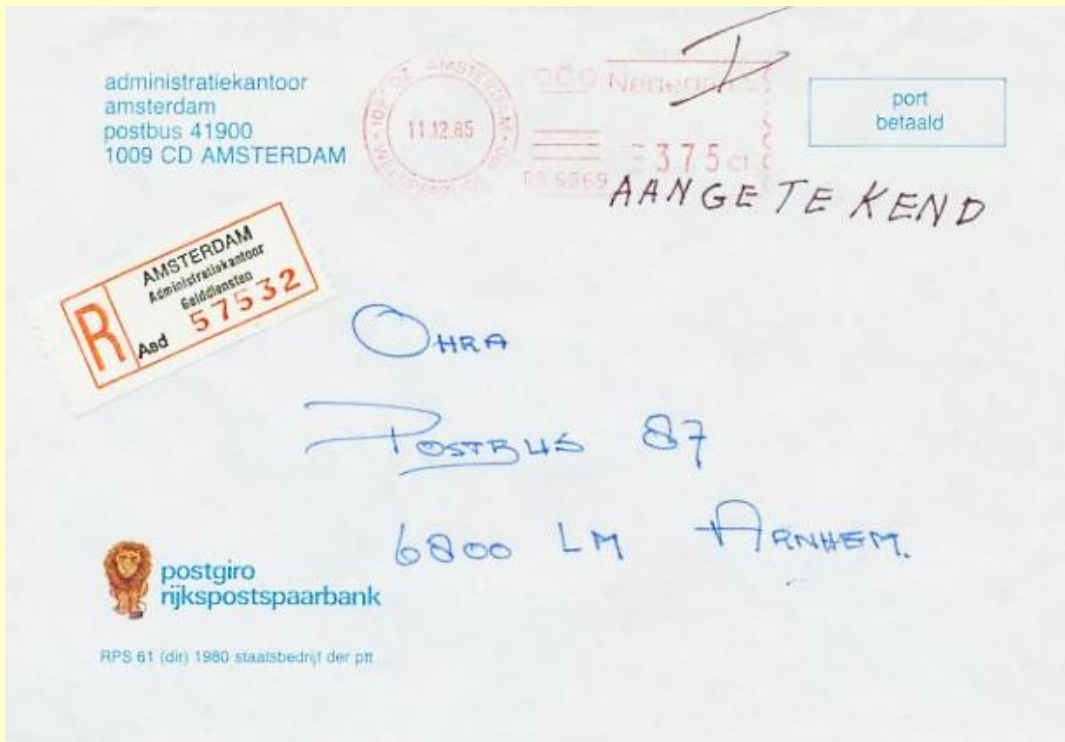 administratiekantoor
amsterdam
postbus 41900
1009 CD AMSTERDAM
AMSTERDAM
11.12.85
Nederland
375 ct
PB 6869
port
betaald
AANGETEKEND
AMSTERDAM
Administratiekantoor
Gelddiensten
R Asd 57532
OHRA
POSTBUS 87
6800 LM ARNHEM.
postgiro
rijkspostspaarbank
RPS 61 (dir) 1980 staatsbedrijf der ptt